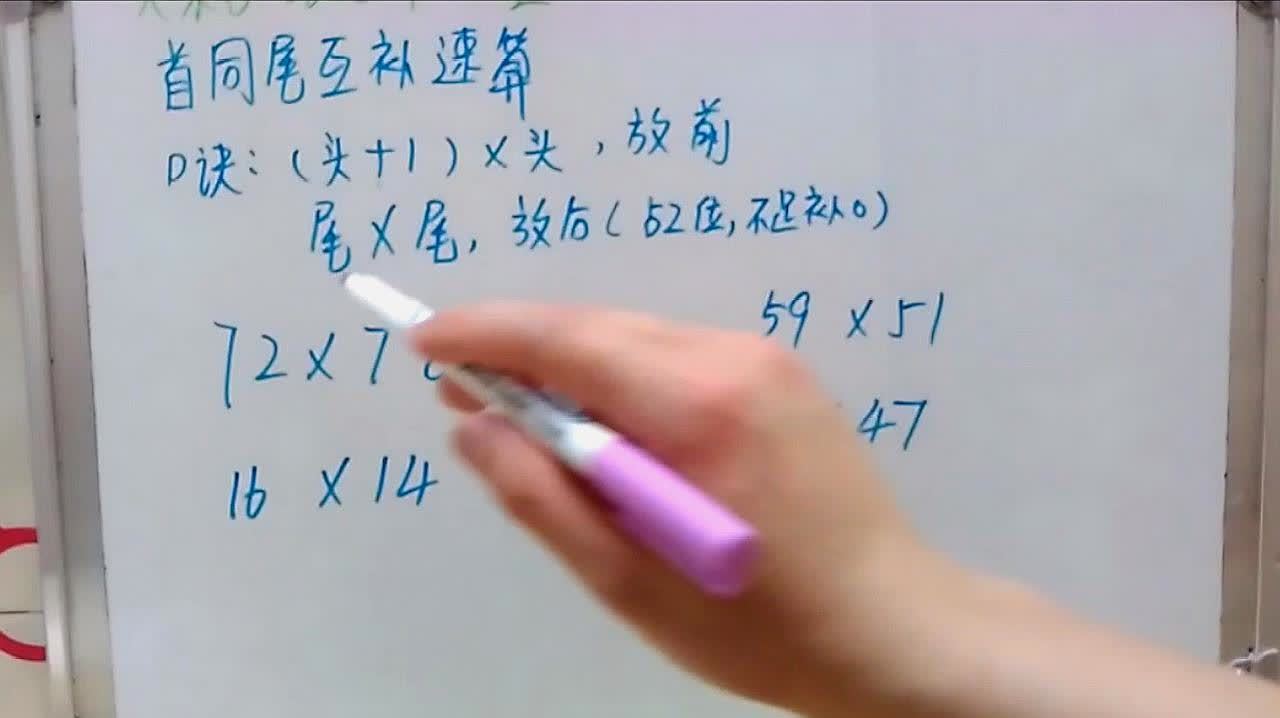 首同尾互补速算
口诀:(头+1)×头,放前
尾×尾,放后(占2位,不足补0)
72×7
59×51
47
16×14